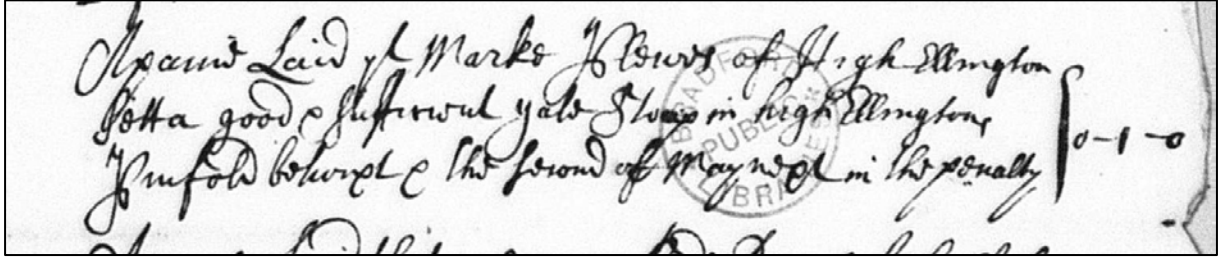 A paine Laid yt Marke Plewes of High Ellington
Setta good & suffitient yate Stoop in high Ellington
Pinfold betwixt & the second of May next in the penalty
0-1-0
BRADFORD
PUBLIC
LIBRARIES